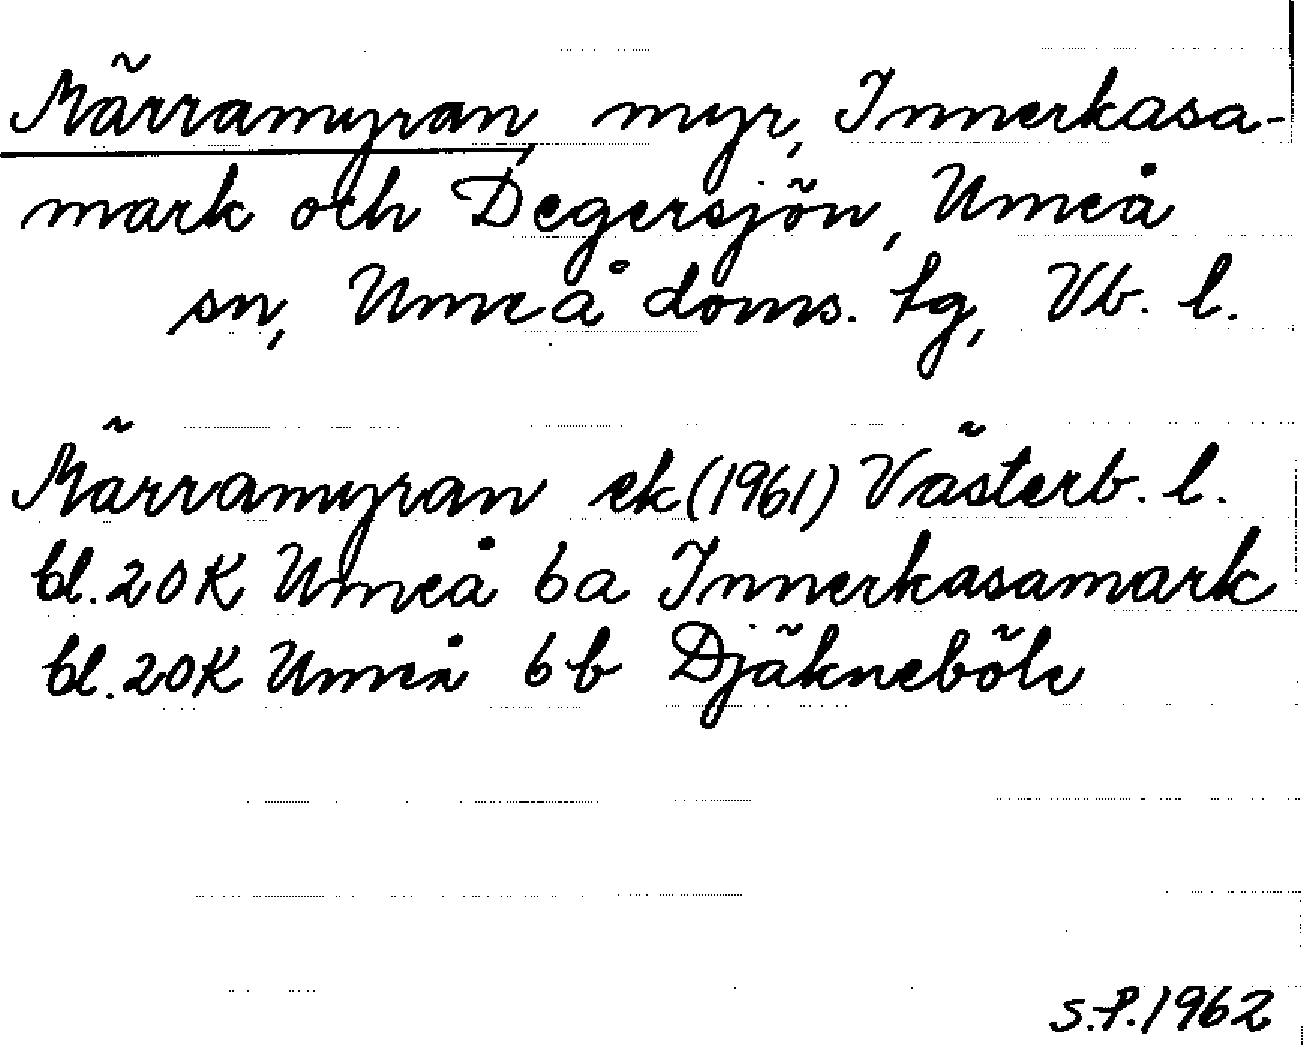 Märramyran, myr, Innerkasa-
mark och Degersjön, Umeå
sn, Umeå doms. tg, Vb. l.
Märramyran ek (1961) Västerb. l.
bl. 20K Umeå 6a Innerkasamark
bl. 20K Umeå 6b Djäkneböle
S.P. 1962